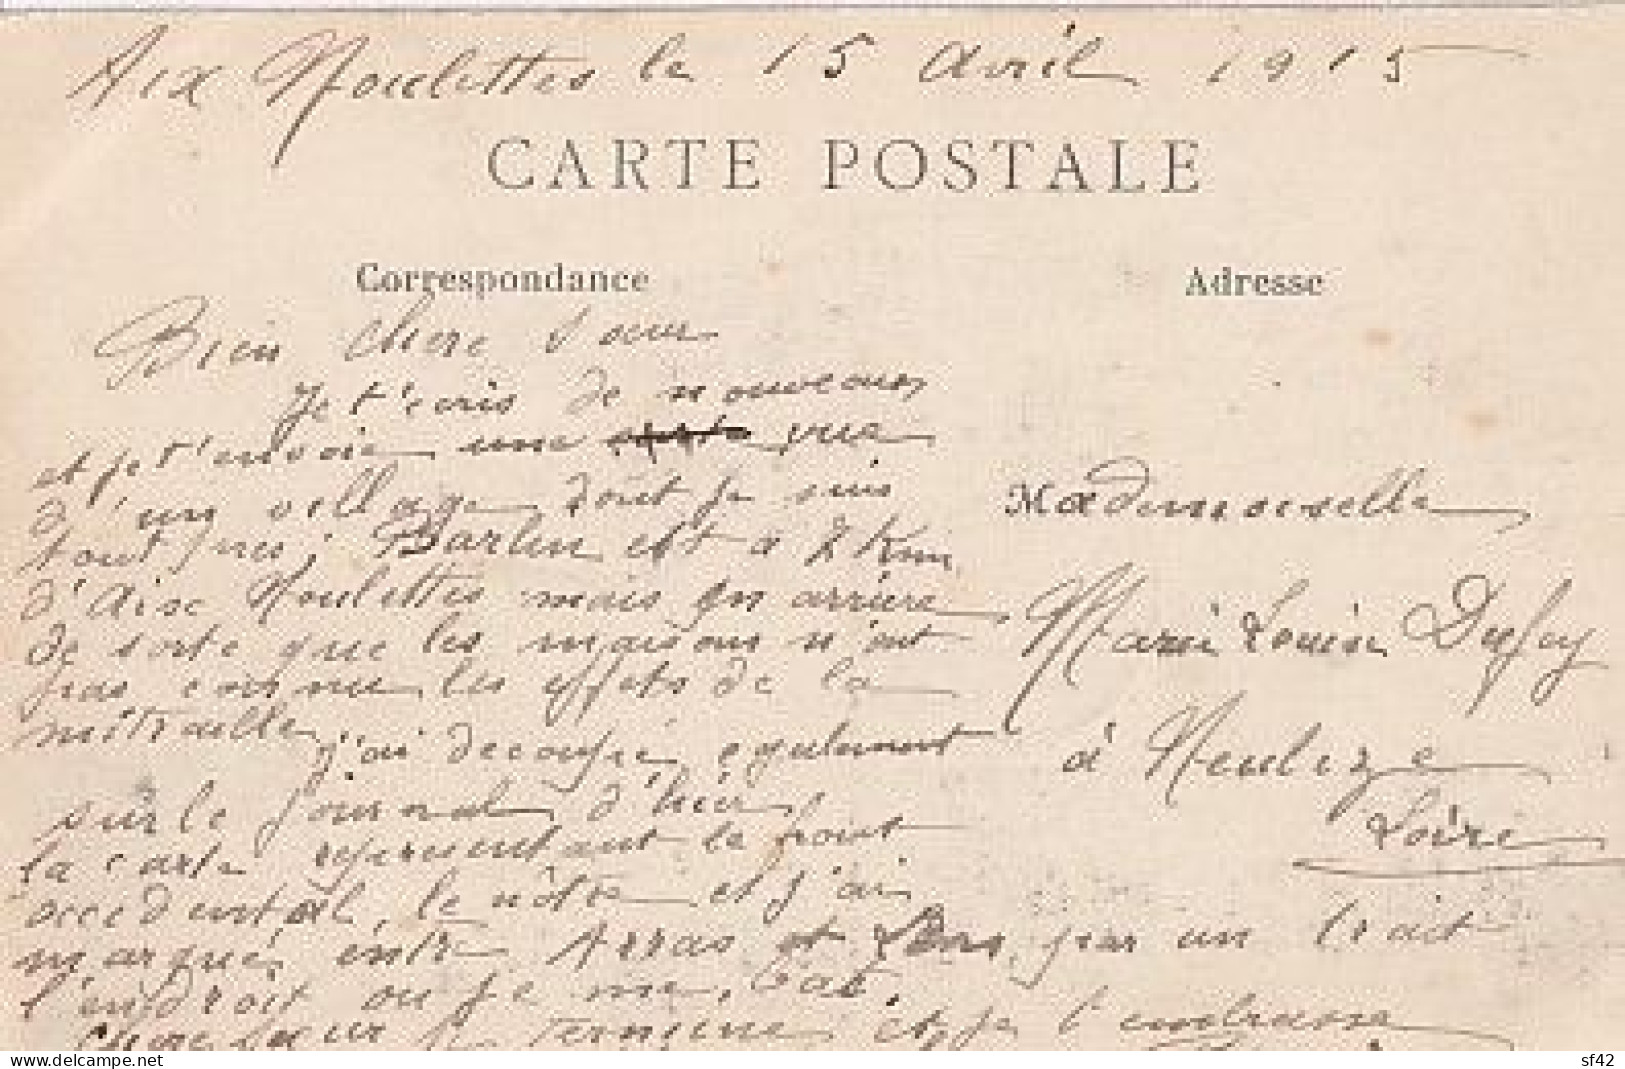 Aix Noulettes le 15 Avril 1915
CARTE POSTALE
Correspondance
Adresse
Bien chere Soeur
Je t'ecris de nouveau
et je t'envoie une carte vue
d'un village dont je suis
tout pres; Barlin est à 2 Km
d'Aix Noulettes mais en arriere
de sorte que les maisons n'ont
pas connu les effets de la
mitraille
j'ai decoupé egalement
sur le journal d'hier
la carte representant le front
occidental, le nôtre et j'ai
marqué entre Arras et Lens par un trait
l'endroit ou je me bat.
Chere soeur je termine et je t'embrasse
Mademoiselle
Marie Louise Dufey
à Neulize
Loire
delcampe.net
sf42